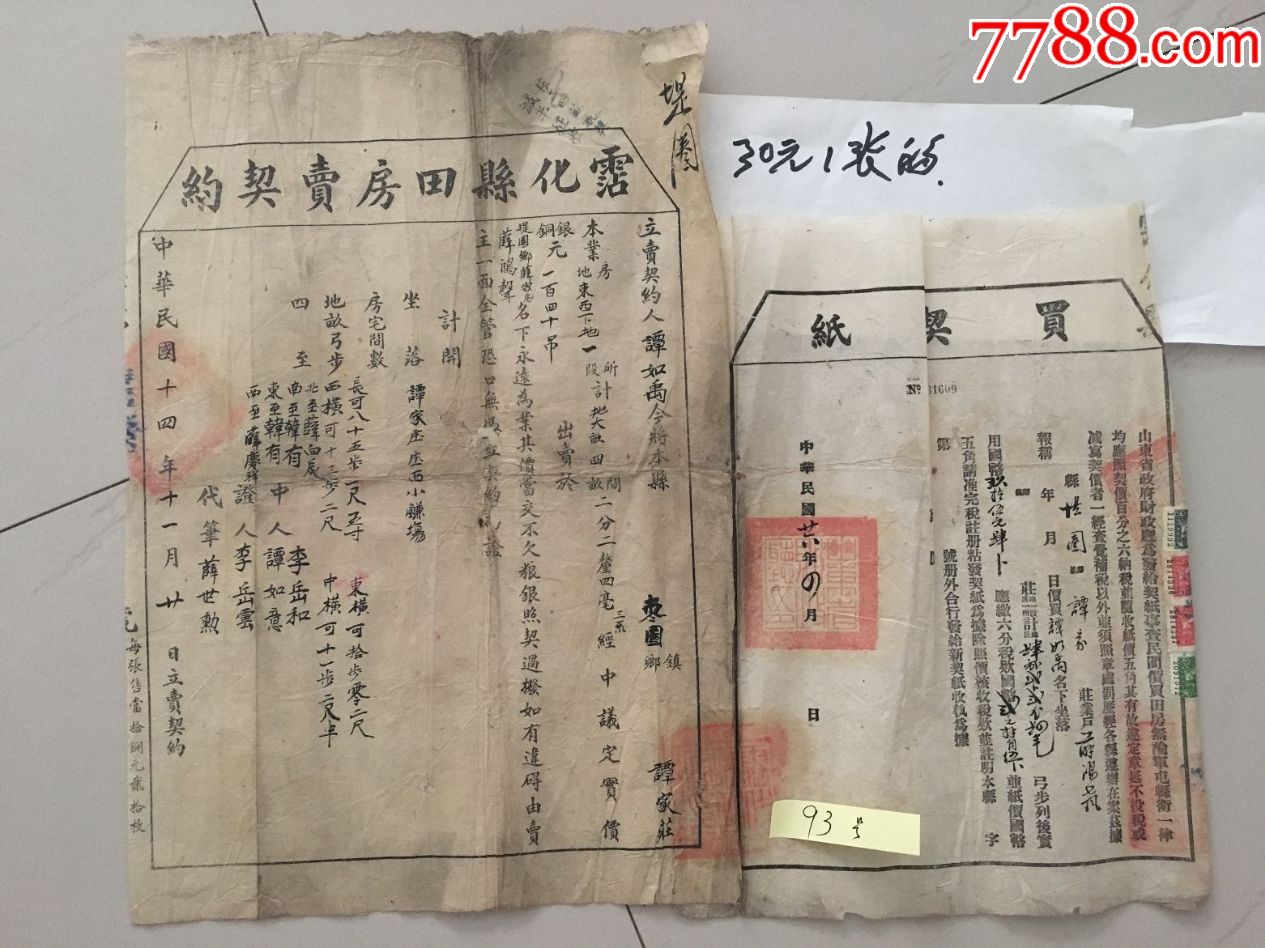 7788.com
30元1张的
堤圈
霑化縣田房賣契約
立賣契約人譚如禹今將本縣 棗園鎮鄉 譚家莊
本業房地東西下地一所段計地大畝四間畝二分二釐四毫三系經中議定實價
銀銅元一百四十吊 出賣於
堤圈鄉薛家莊薛鴻聲名下永遠為業其價當交不欠粮銀照契過撥如有違碍由賣
主一面全管恐口無憑立契約為證
計開
坐落 譚家庄庄西小嫌塲
房宅間數
地畝弓步 長可八十五步一尺五寸 東橫可拾步零二尺
西橫可十三步二尺 中橫可十一步二尺半
四至 北至薛向辰
南至韓有
東至韓有
西至薛慶祥
中人 李岳和
譚如意
證人 李岳雲
代筆 薛世勲
中華民國十四年十一月廿日立賣契約
每張售當拾銅元貳拾枚
買契紙
No 31609
山東省政府財政廳為發給契紙事查民間價買田房無論軍屯縣衛一律
均應照契價百分之六納稅並隨收紙價五角其有故違定章延不投稅或
減寫契價者一經查覺補稅以外並須照章處罰歷經各縣遵辦在案茲據
縣堤圈 譚家莊業戶
報稱 年 月 日價買譚如禹名下坐落
莊 計 弓步列後實
用國幣 應繳六分稅欵國幣 並紙價國幣
五角請准完稅註册粘發契紙為據除照價核收稅欵並註明本縣 字
第 號册外合行發給新契紙收執為據
中華民國廿六年四月 日
93号